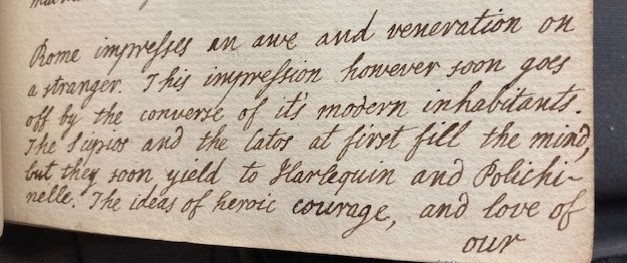 Rome impresses an awe and veneration on
a stranger. This impression however soon goes
off by the converse of it's modern inhabitants.
The Scipios and the Catos at first fill the mind,
but they soon yield to Harlequin and Polichi-
nelle. The ideas of heroic courage, and love of
our